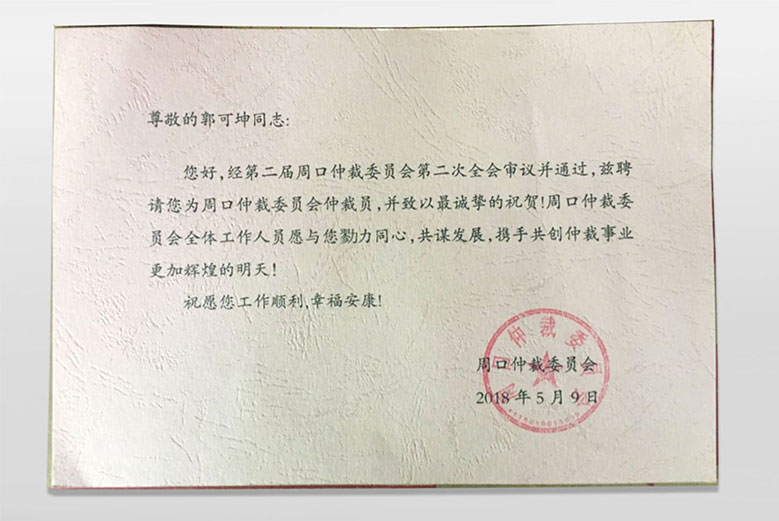 尊敬的郭可坤同志:
您好,经第二届周口仲裁委员会第二次全会审议并通过,兹聘
请您为周口仲裁委员会仲裁员,并致以最诚挚的祝贺!周口仲裁委
员会全体工作人员愿与您勠力同心,共谋发展,携手共创仲裁事业
更加辉煌的明天!
祝愿您工作顺利,幸福安康!
周口仲裁委员会
周口仲裁委员会
2018 年 5 月 9 日